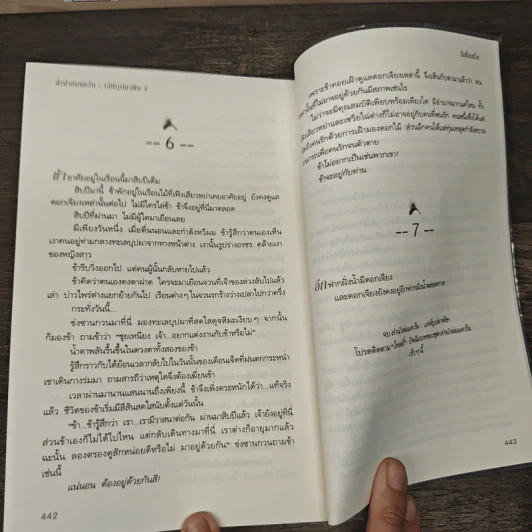 ลำนำสองภพ : บุปผา 3
-- 6 --
ข้าอาศัยอยู่ในเรือนนี้มาสิบปีเต็ม
สิบปีมานี้ ข้าพักอยู่ในเรือนไม้ที่เฟิงเสียวหย่าเคยอาศัยอยู่ ยังคงดูแล
ดอกเจียงเหล่านั้นต่อไป ไม่มีใครไล่ข้า ข้าจึงอยู่ที่นี่มาตลอด
สิบปีที่ผ่านมา ไม่มีผู้ใดมาเยือนเลย
มีเพียงวันหนึ่ง เมื่อตื่นนอนและกำลังหวีผม ข้ารู้สึกว่าตนเองเห็น
เงาคนอยู่ท่ามกลางทะเลบุปผาจากทางหน้าต่าง เงานั้นรูปร่างอรชร คล้ายเงา
ของหญิงสาว
ข้ารีบวิ่งออกไป แต่คนผู้นั้นกลับหายไปแล้ว
ข้าคิดว่าตนเองคงตาฝาด ใครจะมาเยือนจวนที่เจ้าของล่วงลับไปแล้ว
เล่า บ่าวไพร่ต่างแยกย้ายกันไป เรือนต่างๆ ในจวนรกร้างว่างเปล่าไม่กว่าครึ่ง
กระทั่งวันนี้...
ซ่งซานกวนมาที่นี่ มองทะเลบุปผาที่สดใสดุจหิมะเงียบๆ จากนั้น
ก็มองข้า ถามข้าว่า “ซุยเหนียง เจ้า...อยากแต่งงานกับข้าหรือไม่”
น้ำตาพลันรื้นขึ้นในดวงตาทั้งสองของข้า
รู้สึกราวกับได้ย้อนเวลากลับไปในวันนั้นของเดือนเจ็ดที่ฝนตกกระหน่ำ
เขาเดินกางร่มมา ถามสารถีว่าเหตุใดจึงต้องเฆี่ยนข้า
เวลาผ่านมานานแสนนานถึงเพียงนี้ ข้าจึงเพิ่งตระหนักได้ว่า...แท้จริง
แล้ว ชีวิตของข้าเริ่มมีสีสันสดใสนับตั้งแต่วันนั้น
“ข้า...ข้ารู้สึกว่า เรา...เรามีวาสนาต่อกัน ผ่านมาสิบปีแล้ว เจ้ายังอยู่ที่นี่
ส่วนข้าเองก็ไม่ได้ไปไหน แต่กลับเดินทางมาที่นี่ เราต่างก็อายุมากแล้ว
ฉะนั้น ลองตรองดูสักหน่อยดีหรือไม่ มาอยู่ด้วยกัน” ซ่งซานกวนถามข้า
เช่นนี้
แน่นอน ต้องอยู่ด้วยกันสิ!
442
เพราะข้าคอยเฝ้าดูแลดอกเจียงเหล่านี้ จึงเห็นกับตามาแล้วว่า คน
เหล่านั้นที่ไม่อาจอยู่ด้วยกันมีสภาพเช่นไร
ไม่ว่าจะมีคุณสมบัติเพียบพร้อมเพียงใด มีอำนาจมากแค่ไหน ทั้ง
เฟิงเสียวหย่าและเซวียไฉ่ต่างก็ไม่อาจอยู่กับคนที่ตนรัก คนหนึ่งจึงได้แต่
คิดถึงคนรักด้วยการเฝ้ามองดอกไม้ ส่วนอีกคนได้แต่ทุ่มเทสุดกำลังความ
สามารถเพื่อคนรักจนตัวตาย
ข้าไม่อยากเป็นเช่นพวกเขา!
ข้าจะอยู่กับท่าน
-- 7 --
อีกฟากฝั่งน้ำมีดอกเจียง
และดอกเจียงยังคงอยู่อีกฟากฝั่งน้ำตลอดกาล
443